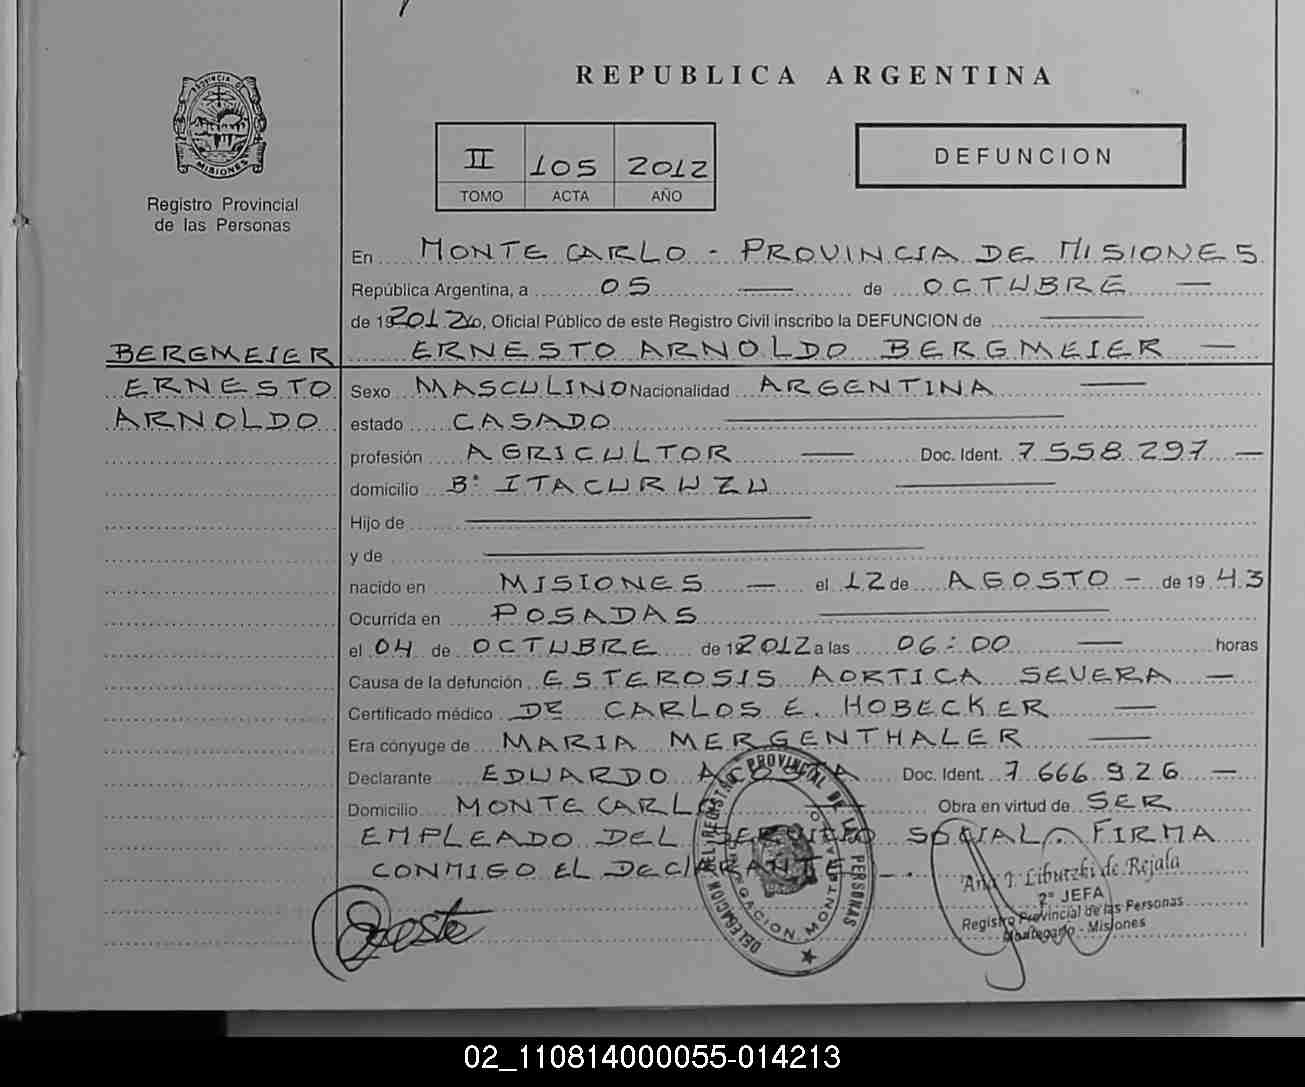 REPUBLICA ARGENTINA
PROVINCIA DE
MISIONES
Registro Provincial
de las Personas
II 105 2012
TOMO ACTA AÑO
DEFUNCION
En MONTE CARLO - PROVINCIA DE MISIONES
República Argentina, a 05 — de OCTUBRE —
de 192012 Yo, Oficial Público de este Registro Civil inscribo la DEFUNCION de —
BERGMEIER ERNESTO ARNOLDO BERGMEIER —
ERNESTO Sexo MASCULINO Nacionalidad ARGENTINA —
ARNOLDO estado CASADO —
profesión AGRICULTOR — Doc. Ident. 7 558 297 —
domicilio B° ITACURUZU —
Hijo de —
y de —
nacido en MISIONES — el 12 de AGOSTO - de 19 43
Ocurrida en POSADAS —
el 04 de OCTUBRE de 12012 a las 06:00 — horas
Causa de la defunción ESTEROSIS AORTICA SEVERA —
Certificado médico DR CARLOS E. HOBECKER —
Era cónyuge de MARIA MERGENTHALER —
Declarante EDUARDO ACOSTA Doc. Ident. 7 666 926 —
Domicilio MONTE CARLO — Obra en virtud de SER
EMPLEADO DEL SERVICIO SOCIAL. FIRMA
CONMIGO EL DECLARANTE — .
DELEGACION DEL REGISTRO PROVINCIAL DE LAS PERSONAS
Ana I. Libutzki de Rejala
2° JEFA
Registro Provincial de las Personas
Montecarlo - Misiones
02_110814000055-014213